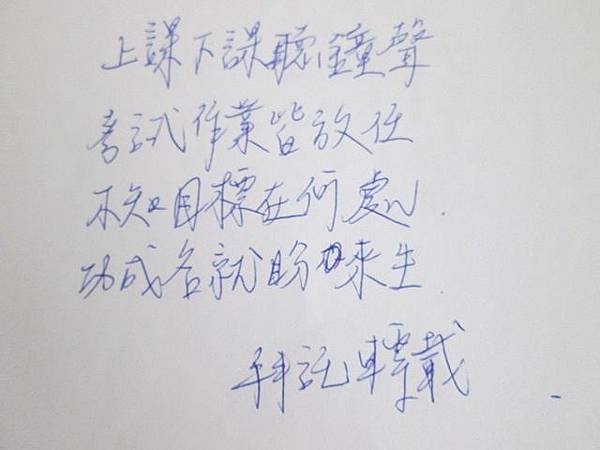 上課下課聽鐘聲
考試作業皆放任
不知目標在何處
功成名就盼來生
拜託轉載